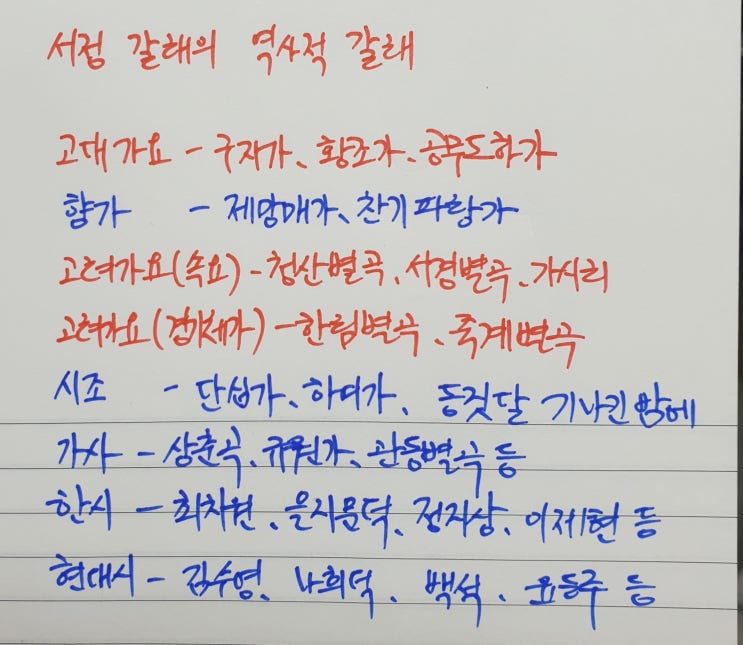 서정 갈래의 역사적 갈래
고대가요 - 구지가、황조가、공무도하가
향가 - 제망매가、찬기파랑가
고려가요(속요) - 청산별곡、서경별곡、가시리
고려가요(경기체가) - 한림별곡、죽계별곡
시조 - 단심가、하여가、동짓달 기나긴 밤에
가사 - 상춘곡、규원가、관동별곡 등
한시 - 최치원、을지문덕、정지상、이제현 등
현대시 - 김수영、나희덕、백석、윤동주 등